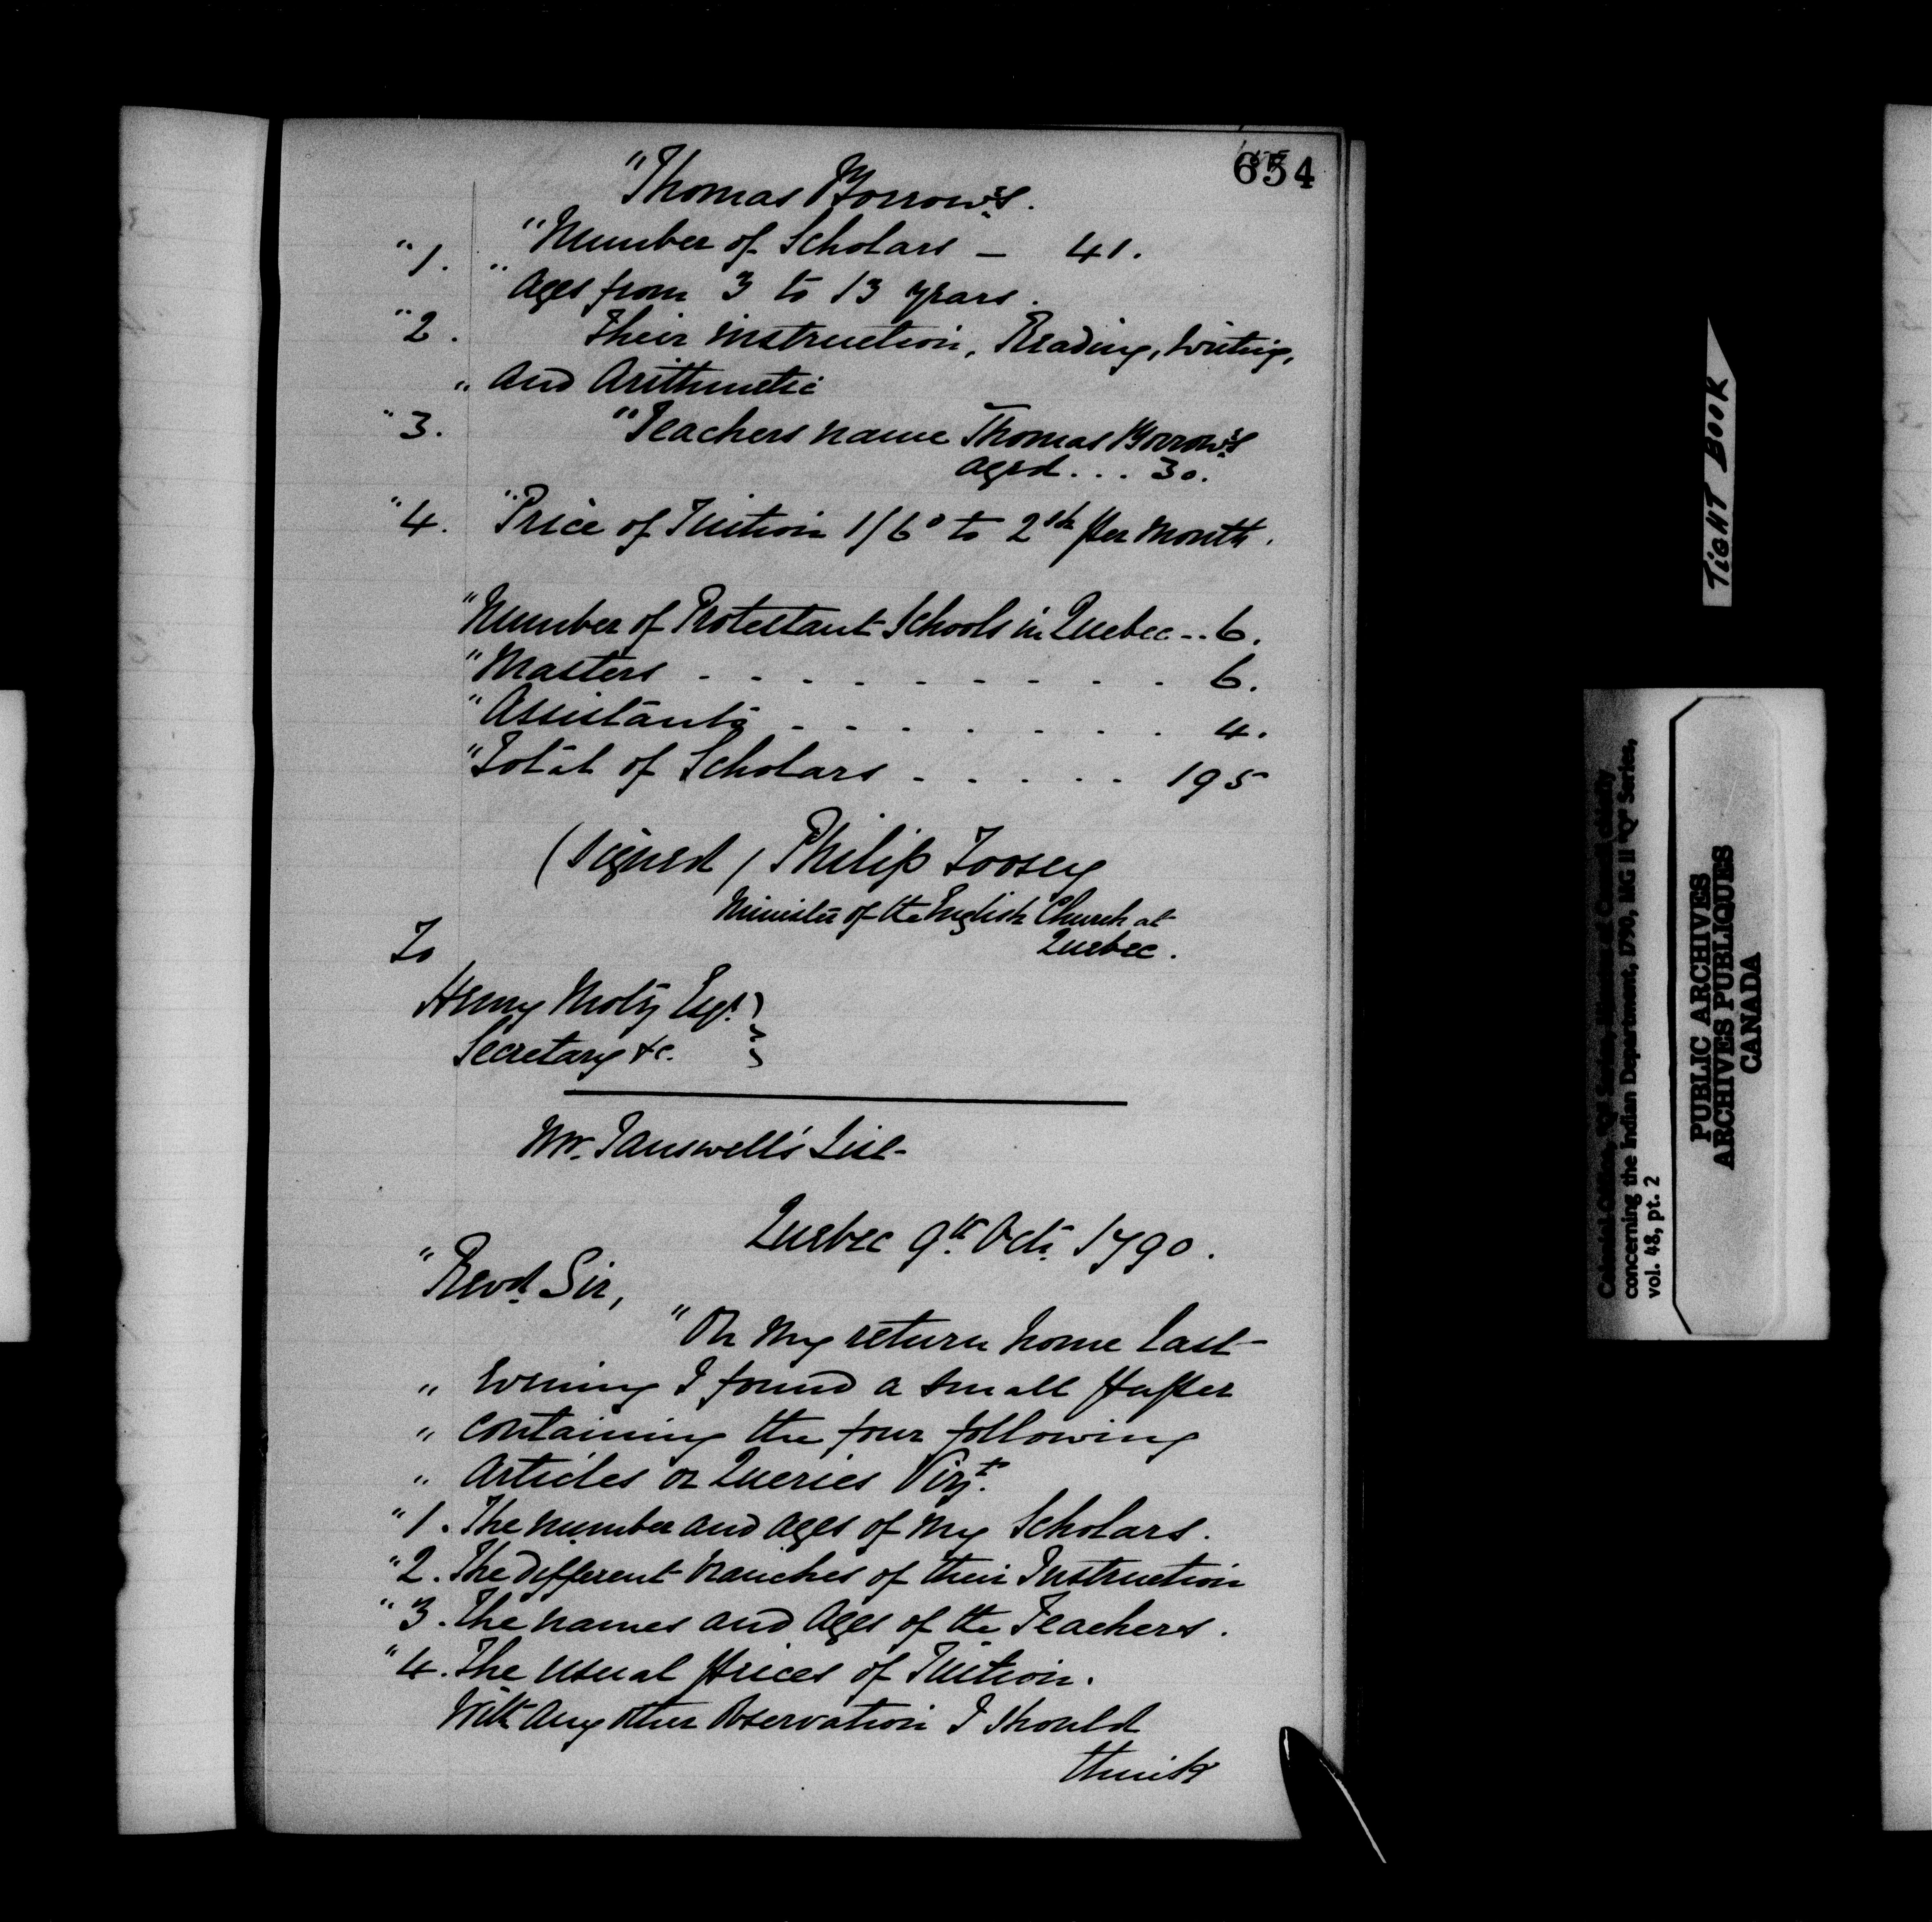 654
"Thomas Borrows.
"1. "Number of Scholars — 41.
" Ages from 3 to 13 years.
"2. Their instruction, Reading, Writing,
" and Arithmetic
"3. "Teachers name Thomas Borrows
aged... 30.
"4. "Price of Tuition 1/6d to 2sh per Month.
"Number of Protestant Schools in Quebec -- 6.
"Masters - - - - - - - - - - 6.
"Assistants - - - - - - - - 4.
"Total of Scholars - - - - - 195
(Signed / Philip Toosey
Minister of the English Church at
Quebec.
To
Henry Motz Esqr. }
Secretary &c. }
Mr. Tanswell's List
Quebec 9th Octr. 1790.
"Revd. Sir,
"On my return home last
" Evening I found a small paper
" containing the four following
" Articles or Queries Vizt.
"1. The number and ages of my Scholars.
"2. The different branches of their Instruction
"3. The names and Ages of the Teachers.
"4. The usual prices of Tuition.
With any other Observation I should
think
TIGHT BOOK
concerning the Indian Department, 1790, MG 11 "Q" Series,
vol. 48, pt. 2
PUBLIC ARCHIVES
ARCHIVES PUBLIQUES
CANADA